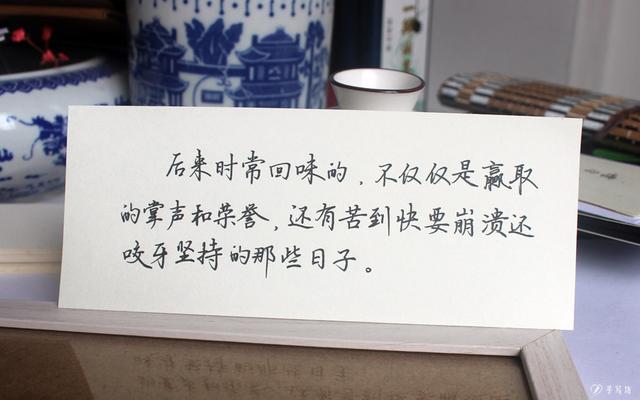 后来时常回味的，不仅仅是赢取
的掌声和荣誉，还有苦到快要崩溃还
咬牙坚持的那些日子。
手写坊